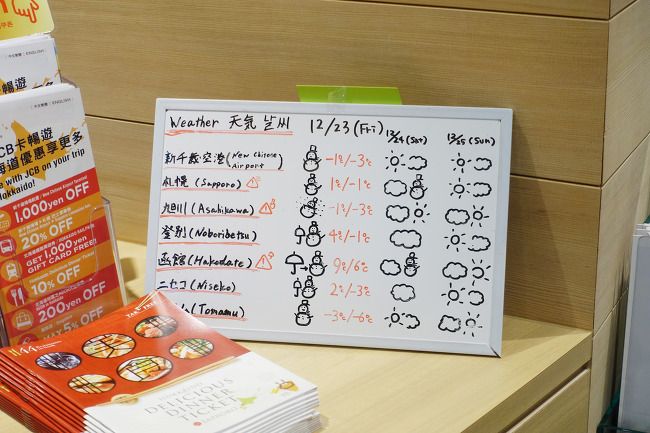 中文繁體 | ENGLISH
CB卡暢遊
海道優惠享更多
e with JCB on your trip
Hokkaido!
1,000yen OFF
20% OFF
GET 1,000yen
GIFT CARD FREE!
10% OFF
200yen OFF
MAX 5% OFF
DELICIOUS
DINNER
TICKET
Weather 天気 날씨 12/23(Fri) 12/24(Sat) 12/25(Sun)
新千歳空港(New Chitose Airport) -1℃/-3℃
札幌(Sapporo) 1℃/-1℃
旭川(Asahikawa) -1℃/-3℃
登別(Noboribetsu) 4℃/-1℃
函館(Hakodate) 9℃/6℃
ニセコ(Niseko) 2℃/-3℃
(Tomamu) -3℃/-6℃